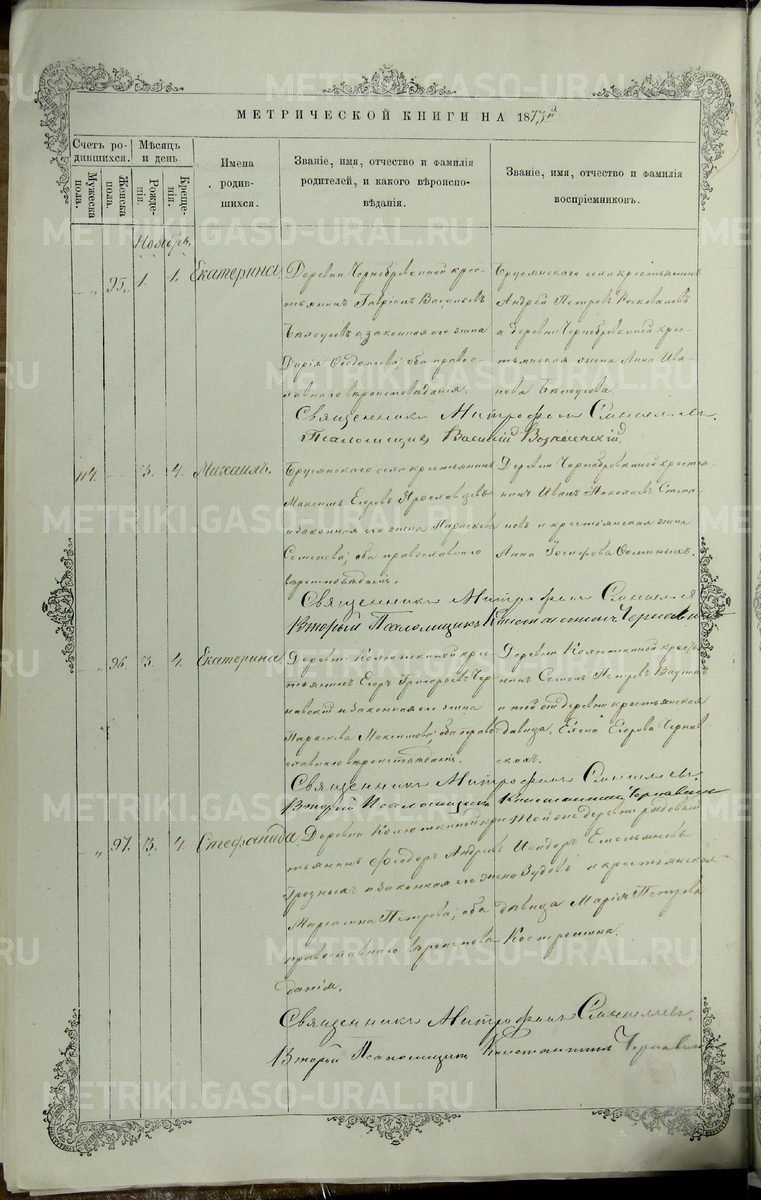 МЕТРИЧЕСКОЙ КНИГИ НА 1873й
Счетъ ро-
дившихся.
Мужеска
пола.
Женска
пола.
Мѣсяцъ
и день
Рожде-
нія.
Креще-
нія.
Имена
родив-
шихся.
Званіе, имя, отчество и фамилія
родителей, и какого вѣроиспо-
вѣданія.
Званіе, имя, отчество и фамилія
воспріемниковъ.
Ноябрь.
„ 95. 1. 1. Екатерина
Деревни Чернобровкиной крес-
тьянинъ Гавріилъ Васильевъ
Бѣлоусовъ и законная его жена
Дарія Ѳеодотова; оба правос-
лавнаго вѣроисповѣданія.
Брусянскаго села крестьянинъ
Андрей Петровъ
и деревни Чернобровкиной крес-
тьянская жена Анна Ива-
нова Бѣлоусова.
Священникъ Митрофанъ
Псаломщикъ Василій Вознесенскій.
114. 3. 4. Михаилъ,
Брусянскаго села крестьянинъ
Максимъ Егоровъ Ярославцевъ
и законная его жена Параскева
Семенова; оба православнаго
вѣроисповѣданія.
Деревни Чернобровкиной крестья-
нинъ Иванъ Николаевъ
новъ и крестьянская жена
Анна Іосифова
Священникъ Митрофанъ
Второй Псаломщикъ Константинъ
„ 96. 3. 4. Екатерина
Деревни Колюткиной крес-
тьянинъ Егоръ Григорьевъ Чер-
навскій и законная его жена
Параскева Максимова; оба право-
славнаго вѣроисповѣданія.
Деревни Колюткиной крестья-
нинъ Семенъ Петровъ
и той же деревни крестьянская
дѣвица Елена Егорова Чернав-
скихъ.
Священникъ Митрофанъ
Второй Псаломщикъ Константинъ
„ 97. 3. 4. Стефанида
Деревни Колюткиной крес-
тьянинъ Ѳеодоръ Андреевъ
Грозныхъ и законная его жена
Маріамна Петрова; оба
православнаго вѣроиспове-
данія.
Той же деревни рядовой
Исидоръ Емельяновъ
Зудовъ и крестьянская
дѣвица Марія Петрова
Костромина.
Священникъ Митрофанъ
Второй Псаломщикъ Константинъ
METRIKI.GASO-URAL.RU